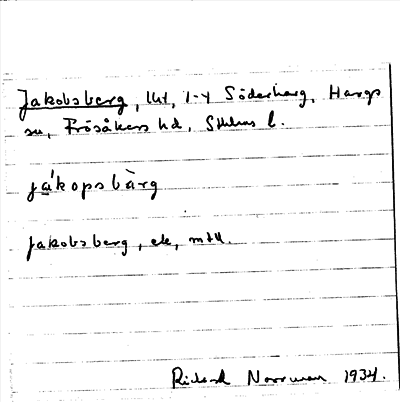 Jakobsberg, lht, 1-4 Söderharg, Hargs
sn, Frösåkers hd, Sthlms l.
jákopsbàrg
Jakobsberg, ek, mtl.
Rickard Norrman 1934.